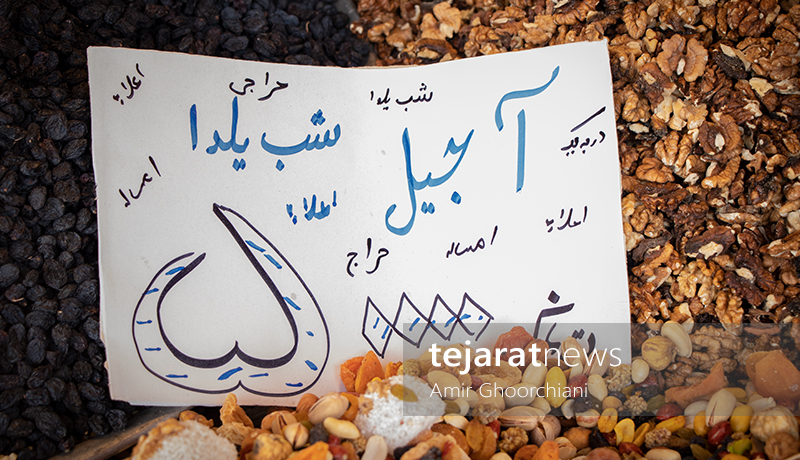 اعلاء
حراجی
شب یلدا
شب یلدا
آجیل
درجه یک
امساله
اعلاء
اعلاء
امساله
حراج
tejaratnews
Amir Ghoorchiani